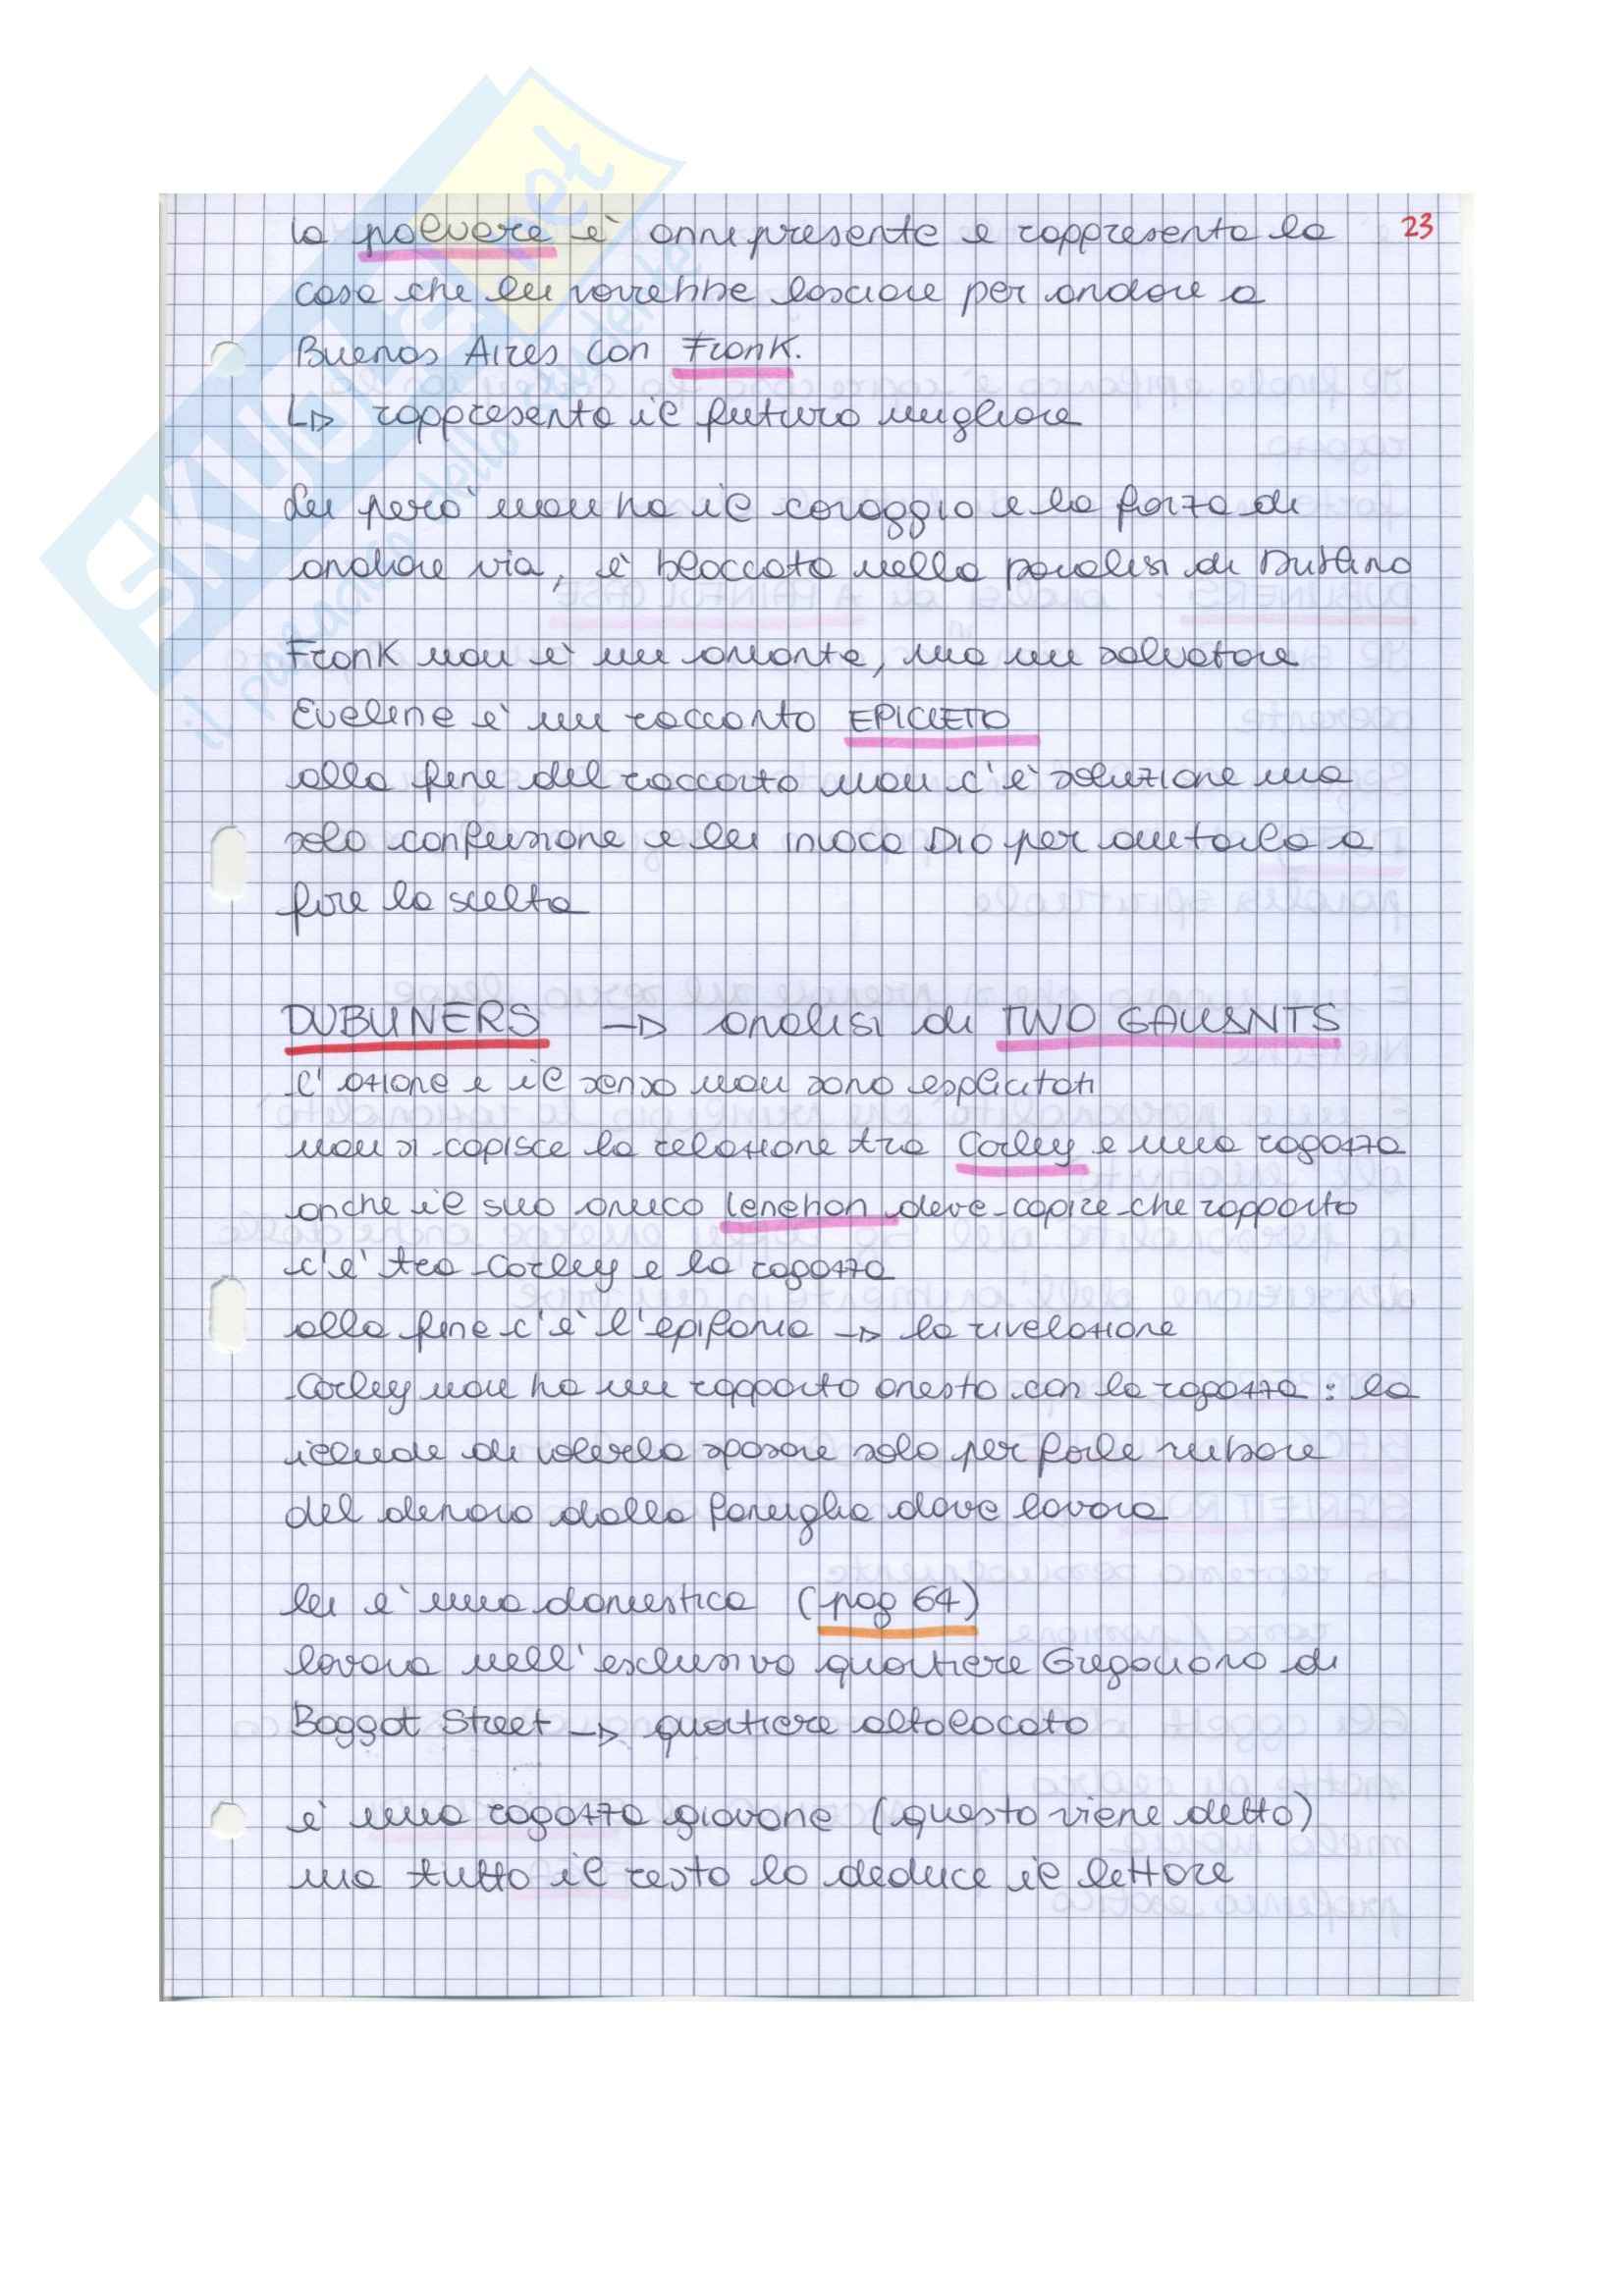 la polvere è onnipresente e rappresenta la 23
casa che lei vorrebbe lasciare per andare a
Buenos Aires con Frank.
↳ rappresenta il futuro migliore
Lei però non ha il coraggio e la forza di
andare via, è bloccata nella paralisi di Dublino
Frank non è un amante, ma un salvatore
Eveline è un racconto EPICLETO
alla fine del racconto non c'è soluzione ma
solo confusione e lei invoca Dio per aiutarla a
fare la scelta
DUBLINERS → analisi di TWO GALLANTS
l'azione e il senso non sono esplicitati
non si capisce la relazione tra Corley e una ragazza
anche il suo amico Lenehan deve capire che rapporto
c'è tra Corley e la ragazza
alla fine c'è l'epifania → la rivelazione
Corley non ha un rapporto onesto con la ragazza: la
illude di volerla sposare solo per farle rubare
del denaro dalla famiglia dove lavora
lei è una domestica (pag 64)
lavora nell'esclusivo quartiere Gregoriano di
Baggot Street → quartiere altolocato
è una ragazza giovane (questo viene detto)
ma tutto il resto lo deduce il lettore
SKUOLA.net
il paradiso dello studente